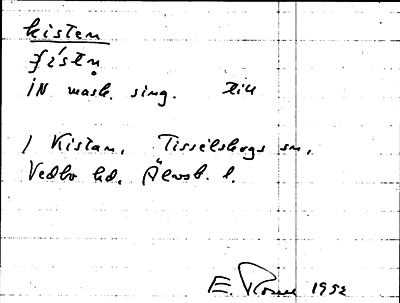 kisten
ʃístn̥
IN mask. sing. till
/ Kistan, Tisselskogs sn,
Vedbo hd. Älvsb. l.
E. 1952